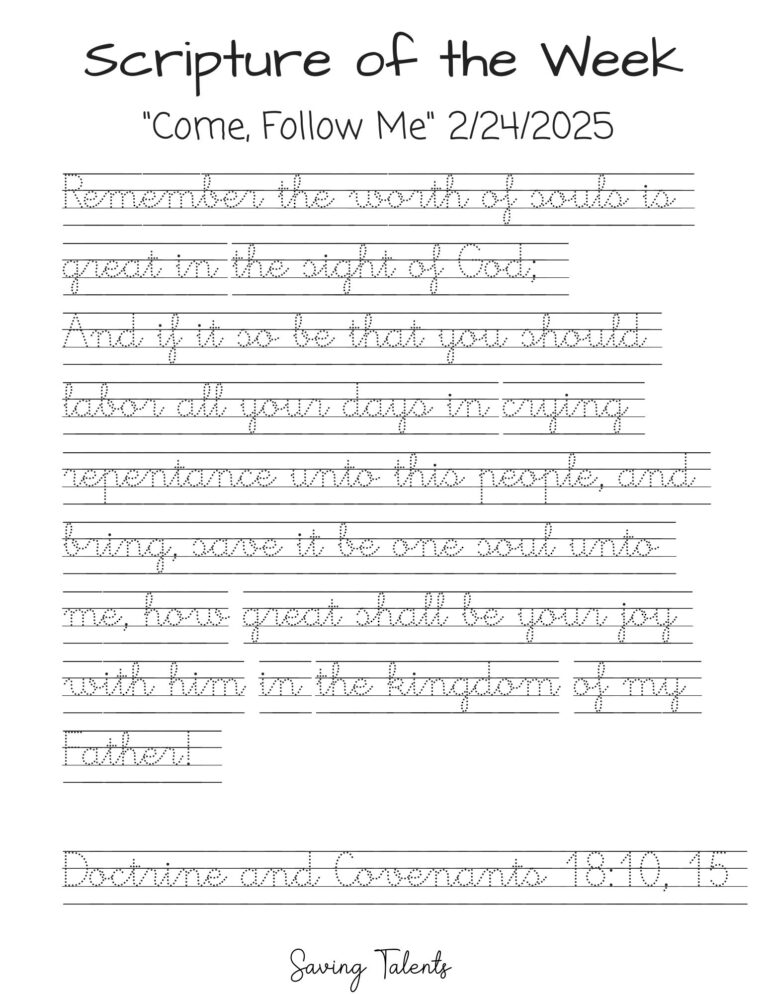 Scripture of the Week
"Come, Follow Me" 2/24/2025
Remember the worth of souls is
great in the sight of God;
And if it so be that you should
labor all your days in crying
repentance unto this people, and
bring, save it be one soul unto
me, how great shall be your joy
with him in the kingdom of my
Father!
Doctrine and Covenants 18:10, 15
Saving Talents